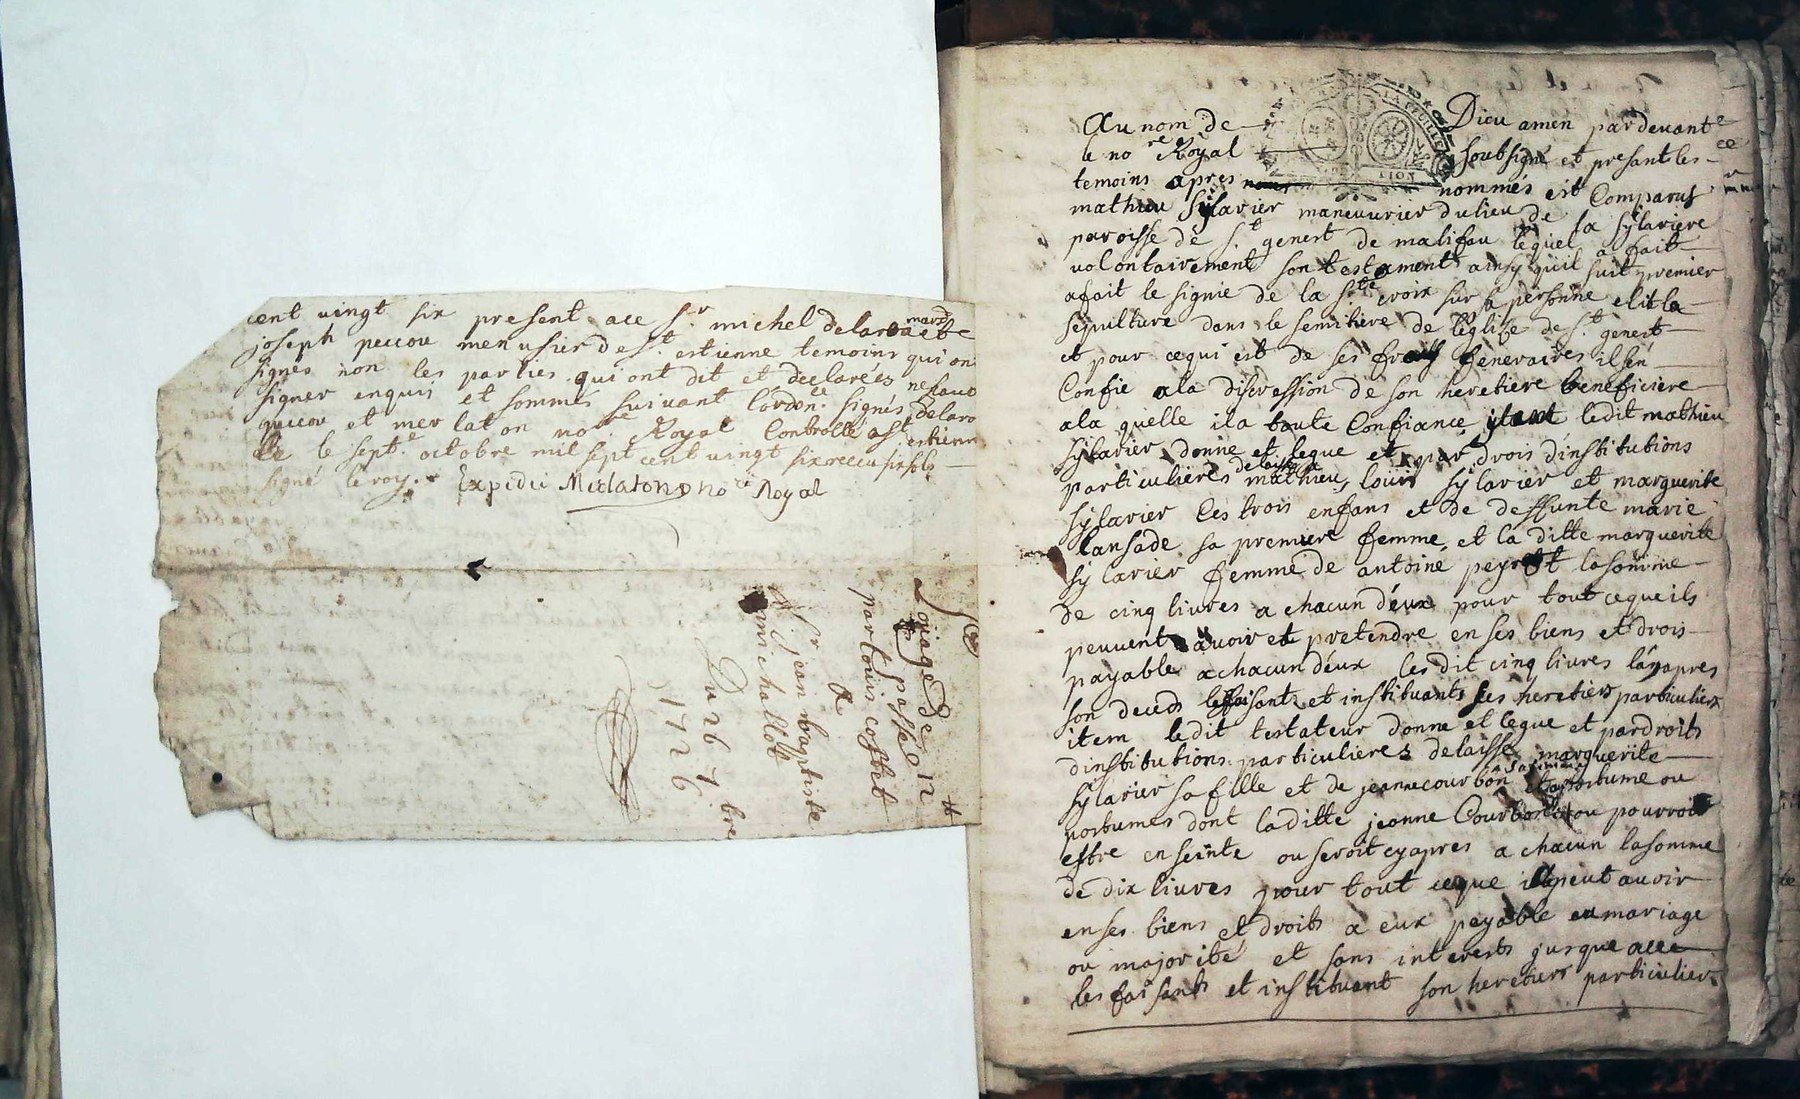 cent vingt six present ace Sr michel delaroa
march
joseph peccou menusier de St estienne temoins qui on
signés non les parties qui ont dit et declarées ne
signer enquis et sommés suivant lordonce signés delaro
peccou et merlaton nore Royal Controllé a St estienne
le sept octobre mil sept cent vingt six receu six sols
signé leroy. Expedié Merlaton nore Royal
Loüage De
passé
par Louis
A
Sr jean baptiste
michallot
Du 26 7bre
1726
Au nom de Dieu amen pardevant
le nore Royal soubsigné et presant les
temoins apres nommés est Comparus
mathieu Sylavier maneuvrier du lieu de la sylaviere
paroisse de St genest de malifau lequel a fait
volontairement son testament ainsy quil suit premier
afait le signie de la Ste croix sur sa personne elit la
sepulture dans le semitiere de leglise de St genest
et pour cequi est de ses frais feneraires il sen
Confie ala discression de son heretiere beneficiere
ala quelle il a toute Confiance ledit mathieu
sylavier donne et legue et par drois dinstitutions
particulieres delaisse a mathieu, louis sylavier et marguerite
sylavier ces trois enfans et de deffunte marie
lansade sa premiere femme, et la ditte marguerite
sylavier femme de antoine peyrot la somme
de cinq livres a chacun deux pour tout cequeils
peuvent avoir et pretendre en ses biens et drois
payable a chacun deux lesdit cinq livres lan apres
son deceds les faisants et instituants ses heretiers particuliers
item ledit testateur donne et legue et par droits
dinstitutions particulieres delaisse marguerite
sylavier sa fille et de jeanne courbon postume ou
postumes dont la ditte jeanne Courbon pourroit
estre enseinte ou seroit cy apres a chacun la somme
de dix livres pour tout ceque il peut avoir
en ses biens et droits a eux payable au mariage
ou majorité et sans interests jusque alle
les faisants et instituant son heretiers particulier